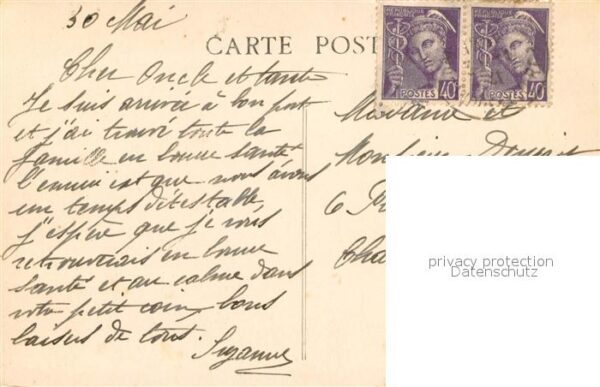 30 Mai
CARTE POST
REPUBLIQUE FRANÇAISE
POSTES 40
REPUBLIQUE FRANÇAISE
POSTES 40
Cher Oncle et tante
Je suis arrivée à bon port
et j'ai trouvé toute la
famille en bonne santé
l'ennui est que nous avons
un temps détestable,
j'espère que je vous
retrouverais en bonne
santé et au calme dans
votre petit coin, bons
baisers de tous.
Suzanne
Madame et
Monsieur
6
Cha
privacy protection
Datenschutz